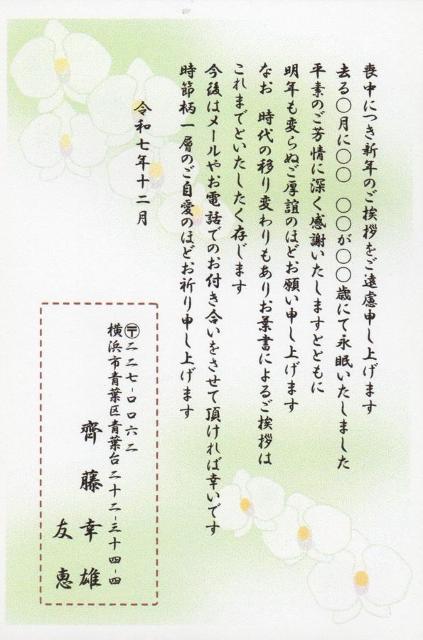 喪中につき新年のご挨拶をご遠慮申し上げます
去る〇月に〇〇 〇〇が〇〇歳にて永眠いたしました
平素のご芳情に深く感謝いたしますとともに
明年も変らぬご厚誼のほどお願い申し上げます
なお 時代の移り変わりもありお葉書によるご挨拶は
これまでといたしたく存じます
今後はメールやお電話でのお付き合いをさせて頂ければ幸いです
時節柄一層のご自愛のほどお祈り申し上げます
令和七年十二月
〒二二七-〇〇六二
横浜市青葉区青葉台二十二-三十四-四
齊藤幸雄
友惠